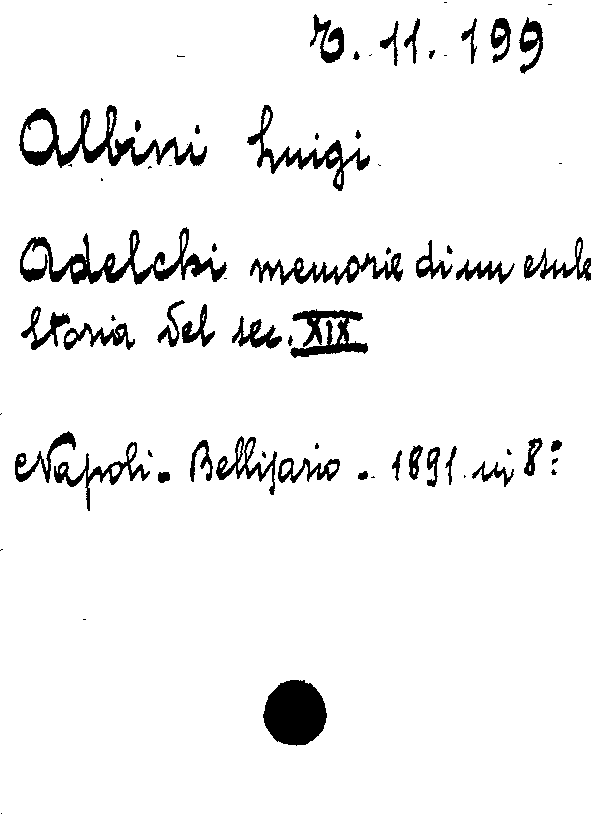 7. 11. 199
Albini Luigi
Adelchi memorie di un esule
Storia del sec. XIX
Napoli - Bellisario - 1891 in 8º